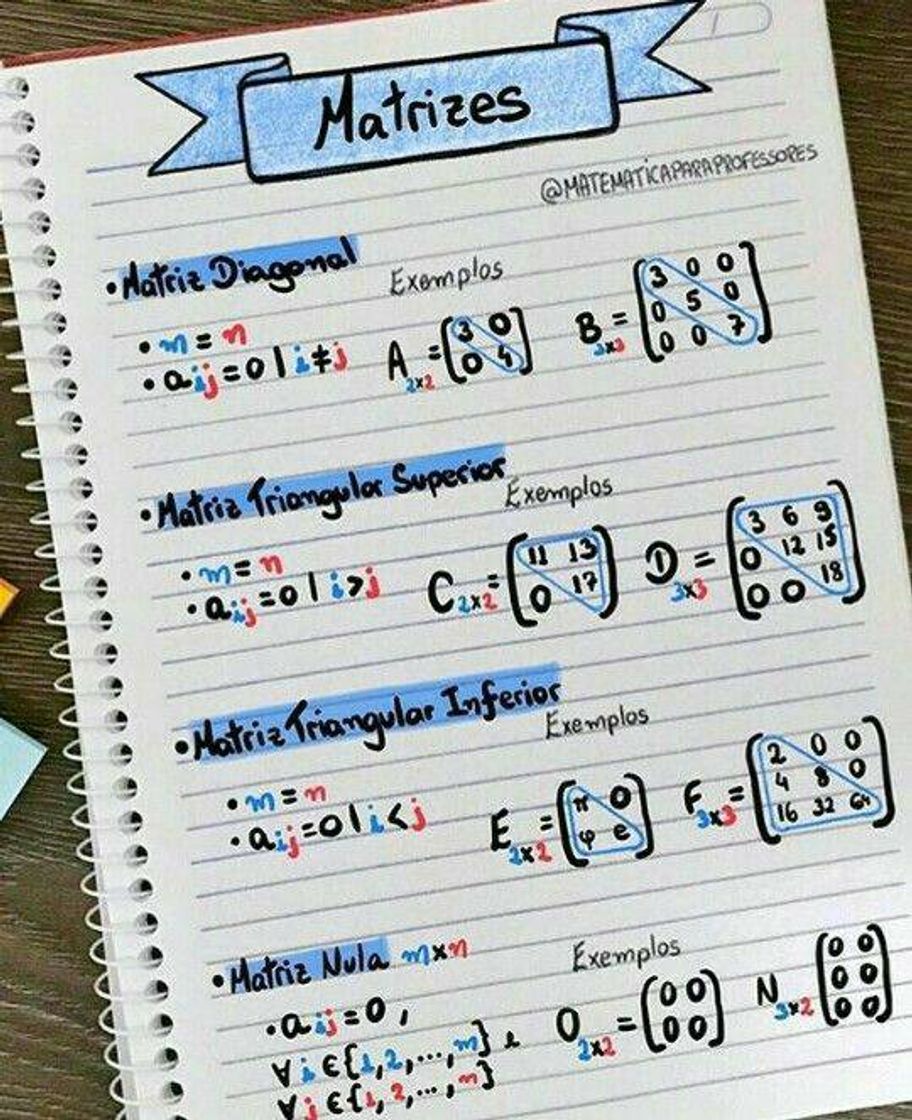 Matrizes
@MATEMATICAPARAPROFESSORES
• Matriz Diagonal
Exemplos
• m = n
• aij = 0 | i ≠ j
A2x2 = [3 0
0 4]
B3x3 = [3 0 0
0 5 0
0 0 7]
• Matriz Triangular Superior
Exemplos
• m = n
• aij = 0 | i > j
C2x2 = [11 13
0 17]
D3x3 = [3 6 9
0 12 15
0 0 18]
• Matriz Triangular Inferior
Exemplos
• m = n
• aij = 0 | i < j
E2x2 = [π 0
φ e]
F3x3 = [2 0 0
4 8 0
16 32 64]
• Matriz Nula mxn
Exemplos
• aij = 0,
∀ i ∈ {1, 2, ..., m} e
∀ j ∈ {1, 2, ..., n}
O2x2 = [0 0
0 0]
N3x2 [0 0
0 0
0 0]